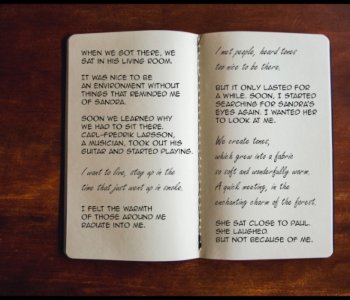 WHEN WE GOT THERE, WE
SAT IN HIS LIVING ROOM.
IT WAS NICE TO BE
AN ENVIRONMENT WITHOUT
THINGS THAT REMINDED ME
OF SANDRA.
SOON WE LEARNED WHY
WE HAD TO SIT THERE.
CARL-FREDRIK LARSSON,
A MUSICIAN, TOOK OUT HIS
GUITAR AND STARTED PLAYING.
I want to live, stay up in the
time that just went up in smoke.
I FELT THE WARMTH
OF THOSE AROUND ME
RADIATE INTO ME.
I met people, heard tones
too nice to be there.
BUT IT ONLY LASTED FOR
A WHILE. SOON, I STARTED
SEARCHING FOR SANDRA'S
EYES AGAIN. I WANTED HER
TO LOOK AT ME.
We create tones,
which grew into a fabric
so soft and wonderfully warm.
A quick meeting, in the
enchanting charm of the forest.
SHE SAT CLOSE TO PAUL.
SHE LAUGHED.
BUT NOT BECAUSE OF ME.